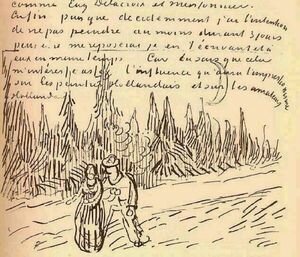 comme Eug Delacroix et Meissonnier.
Enfin puisque decidemment j'ai l'intention
de ne pas peindre au moins durant 3 jours
me reposerai je en t'ecrivant et à
eux en meme temps. Car tu sais que cela
m'interesse assez l'influence qu'aura l'impressionisme
sur les peintres Hollandais et sur les amateurs
Hollandais